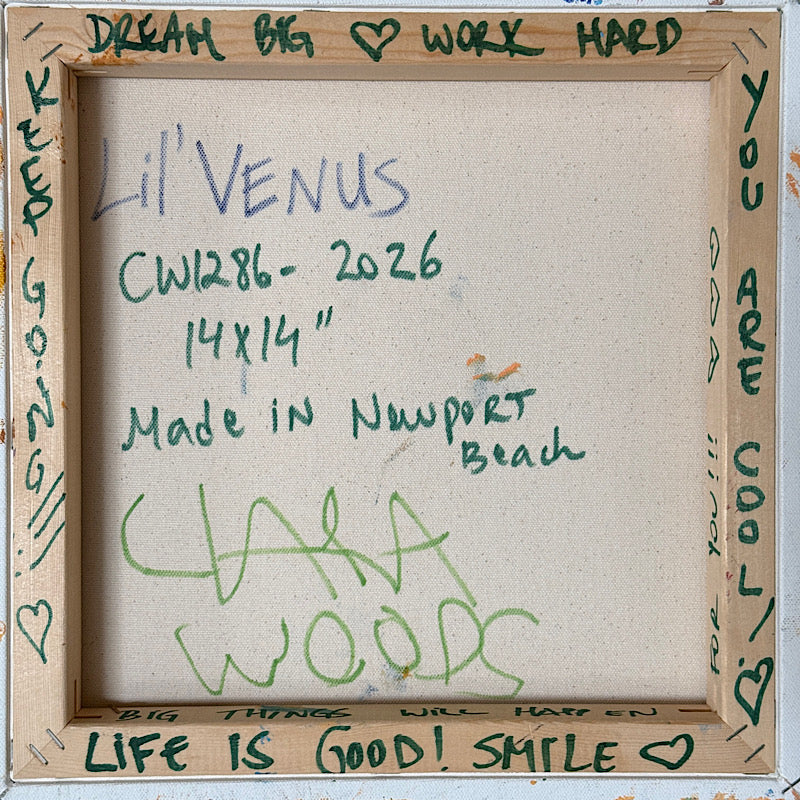 DREAM BIG ♡ WORK HARD
YOU ARE COOL! ♡
LIFE IS GOOD! SMILE ♡
KEEP GOING!!! ♡
Lil' VENUS
CW1286- 2026
14X14"
Made in Newport
Beach
CLARA
WOODS
BIG THINGS WILL HAPPEN
FOR YOU!!!